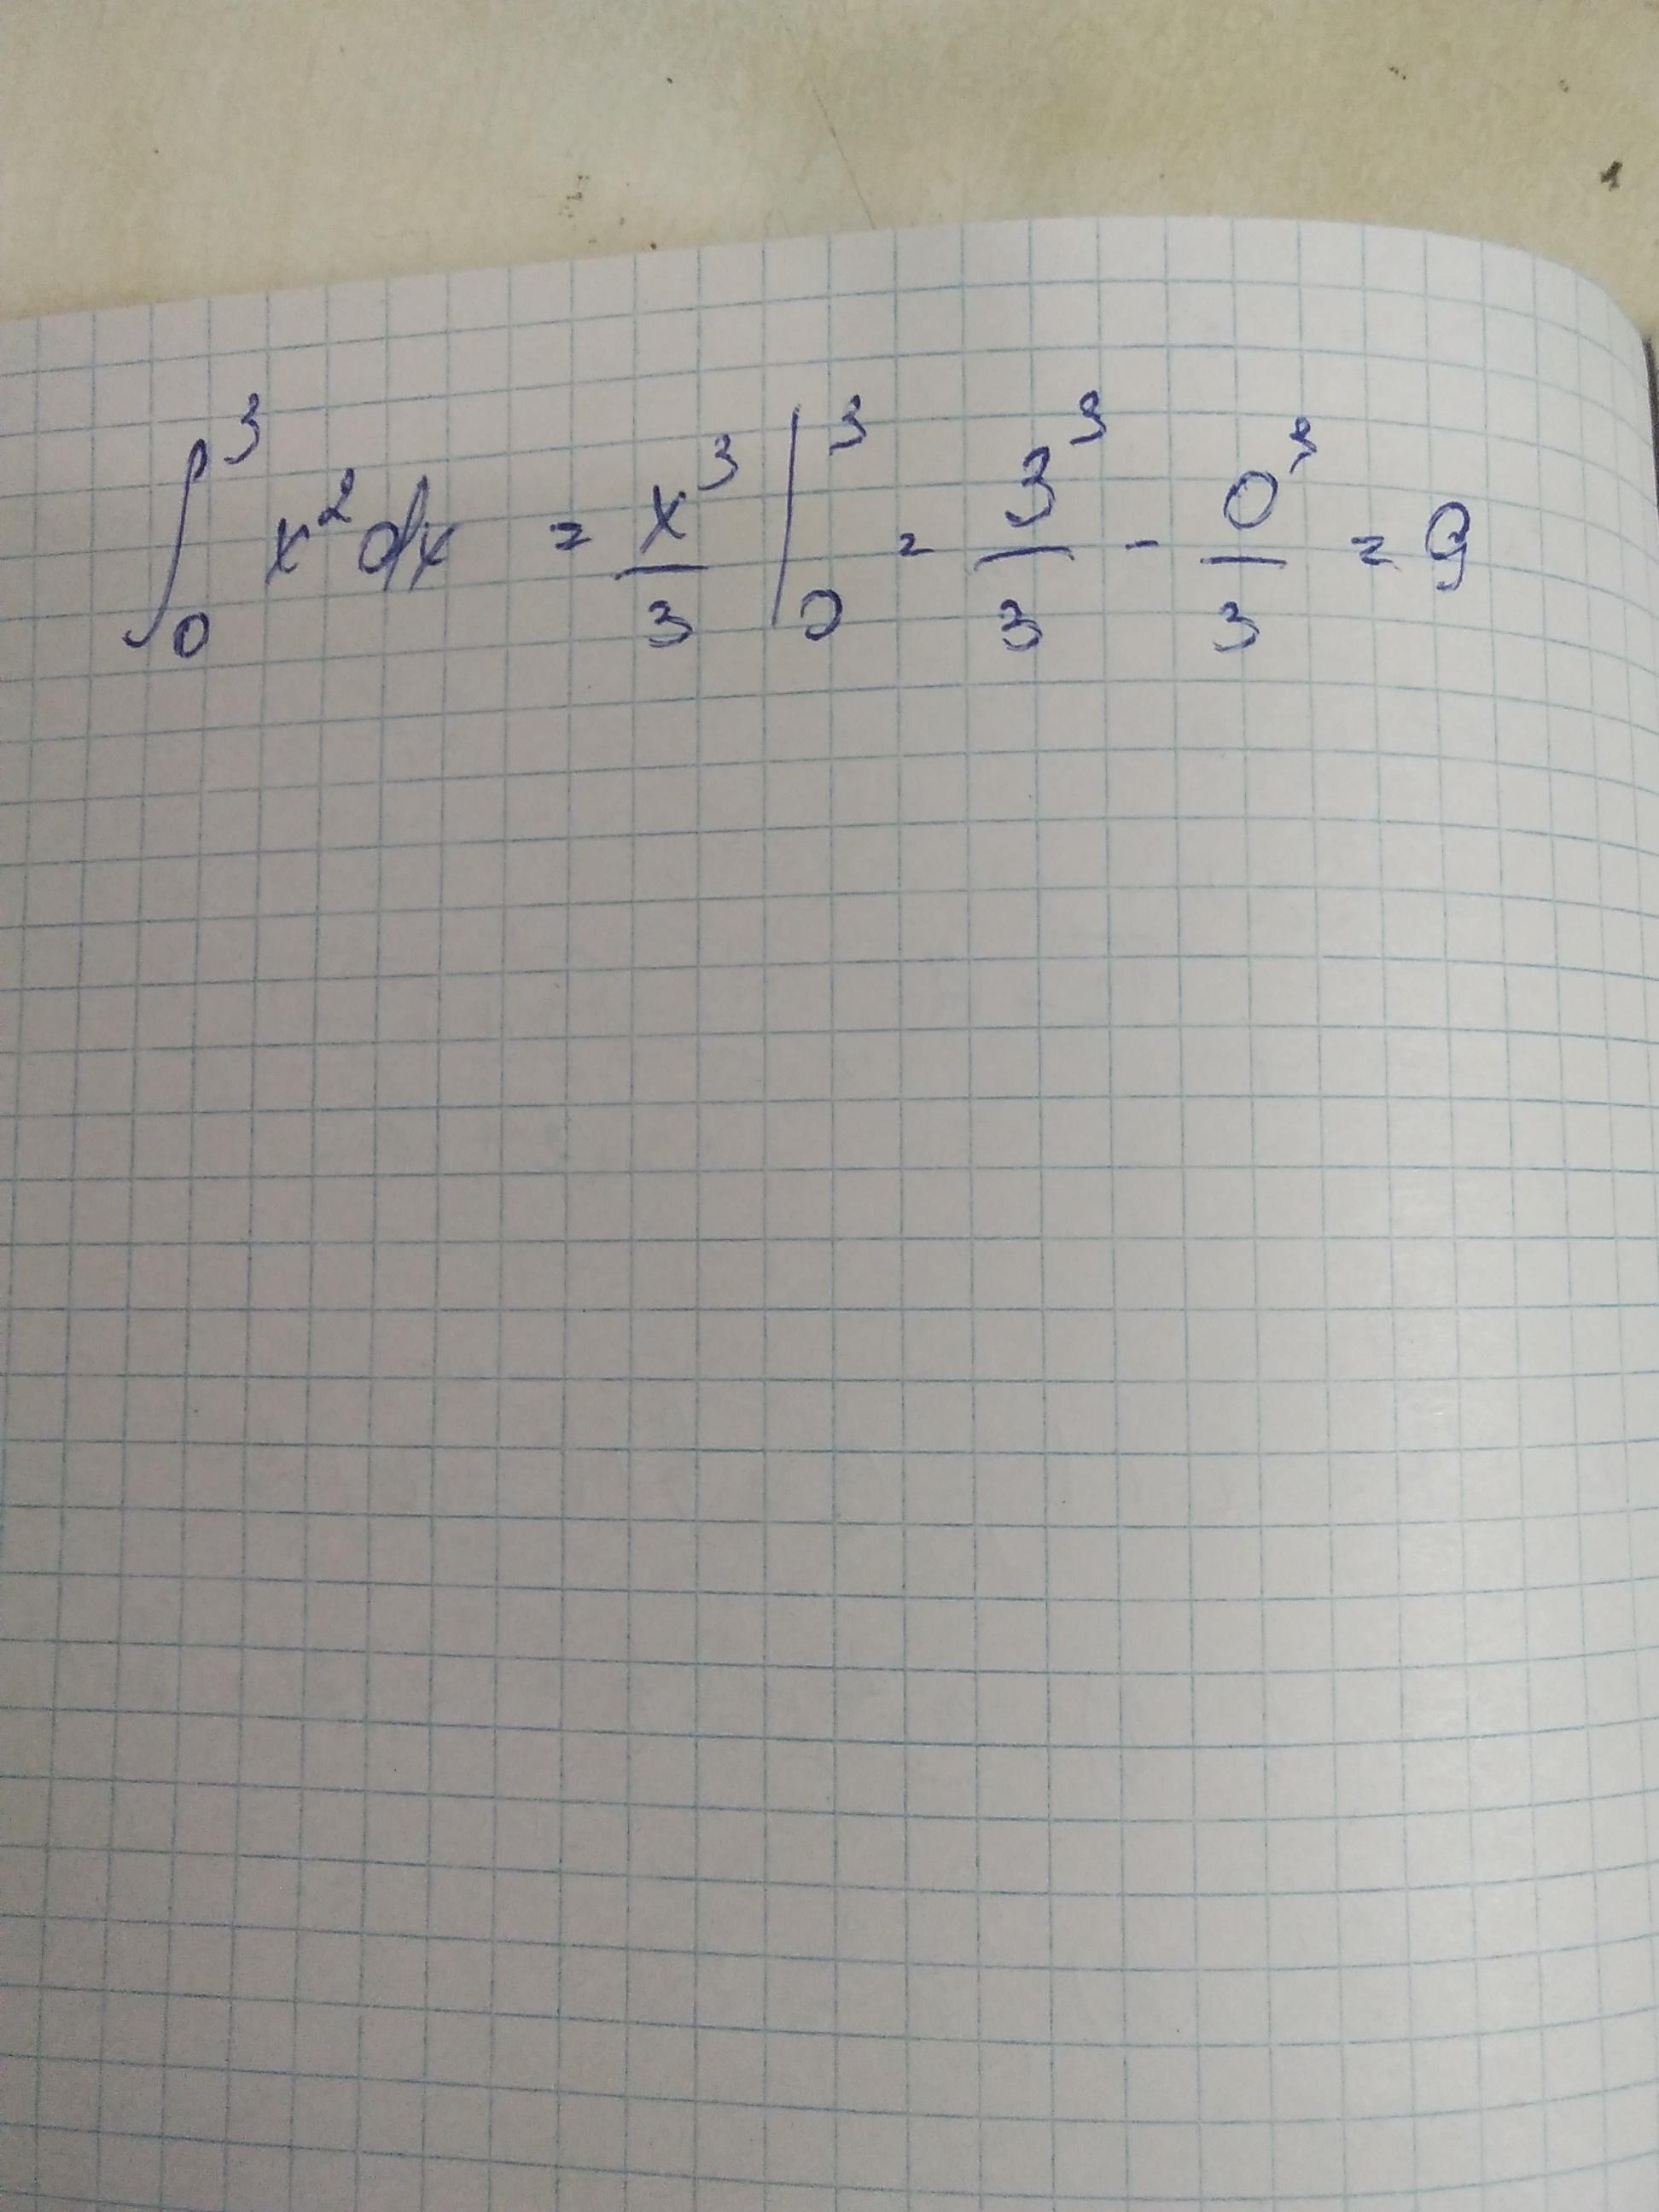 ∫₀³ x² dx = x³/3 |₀³ = 3³/3 - 0³/3 = 9